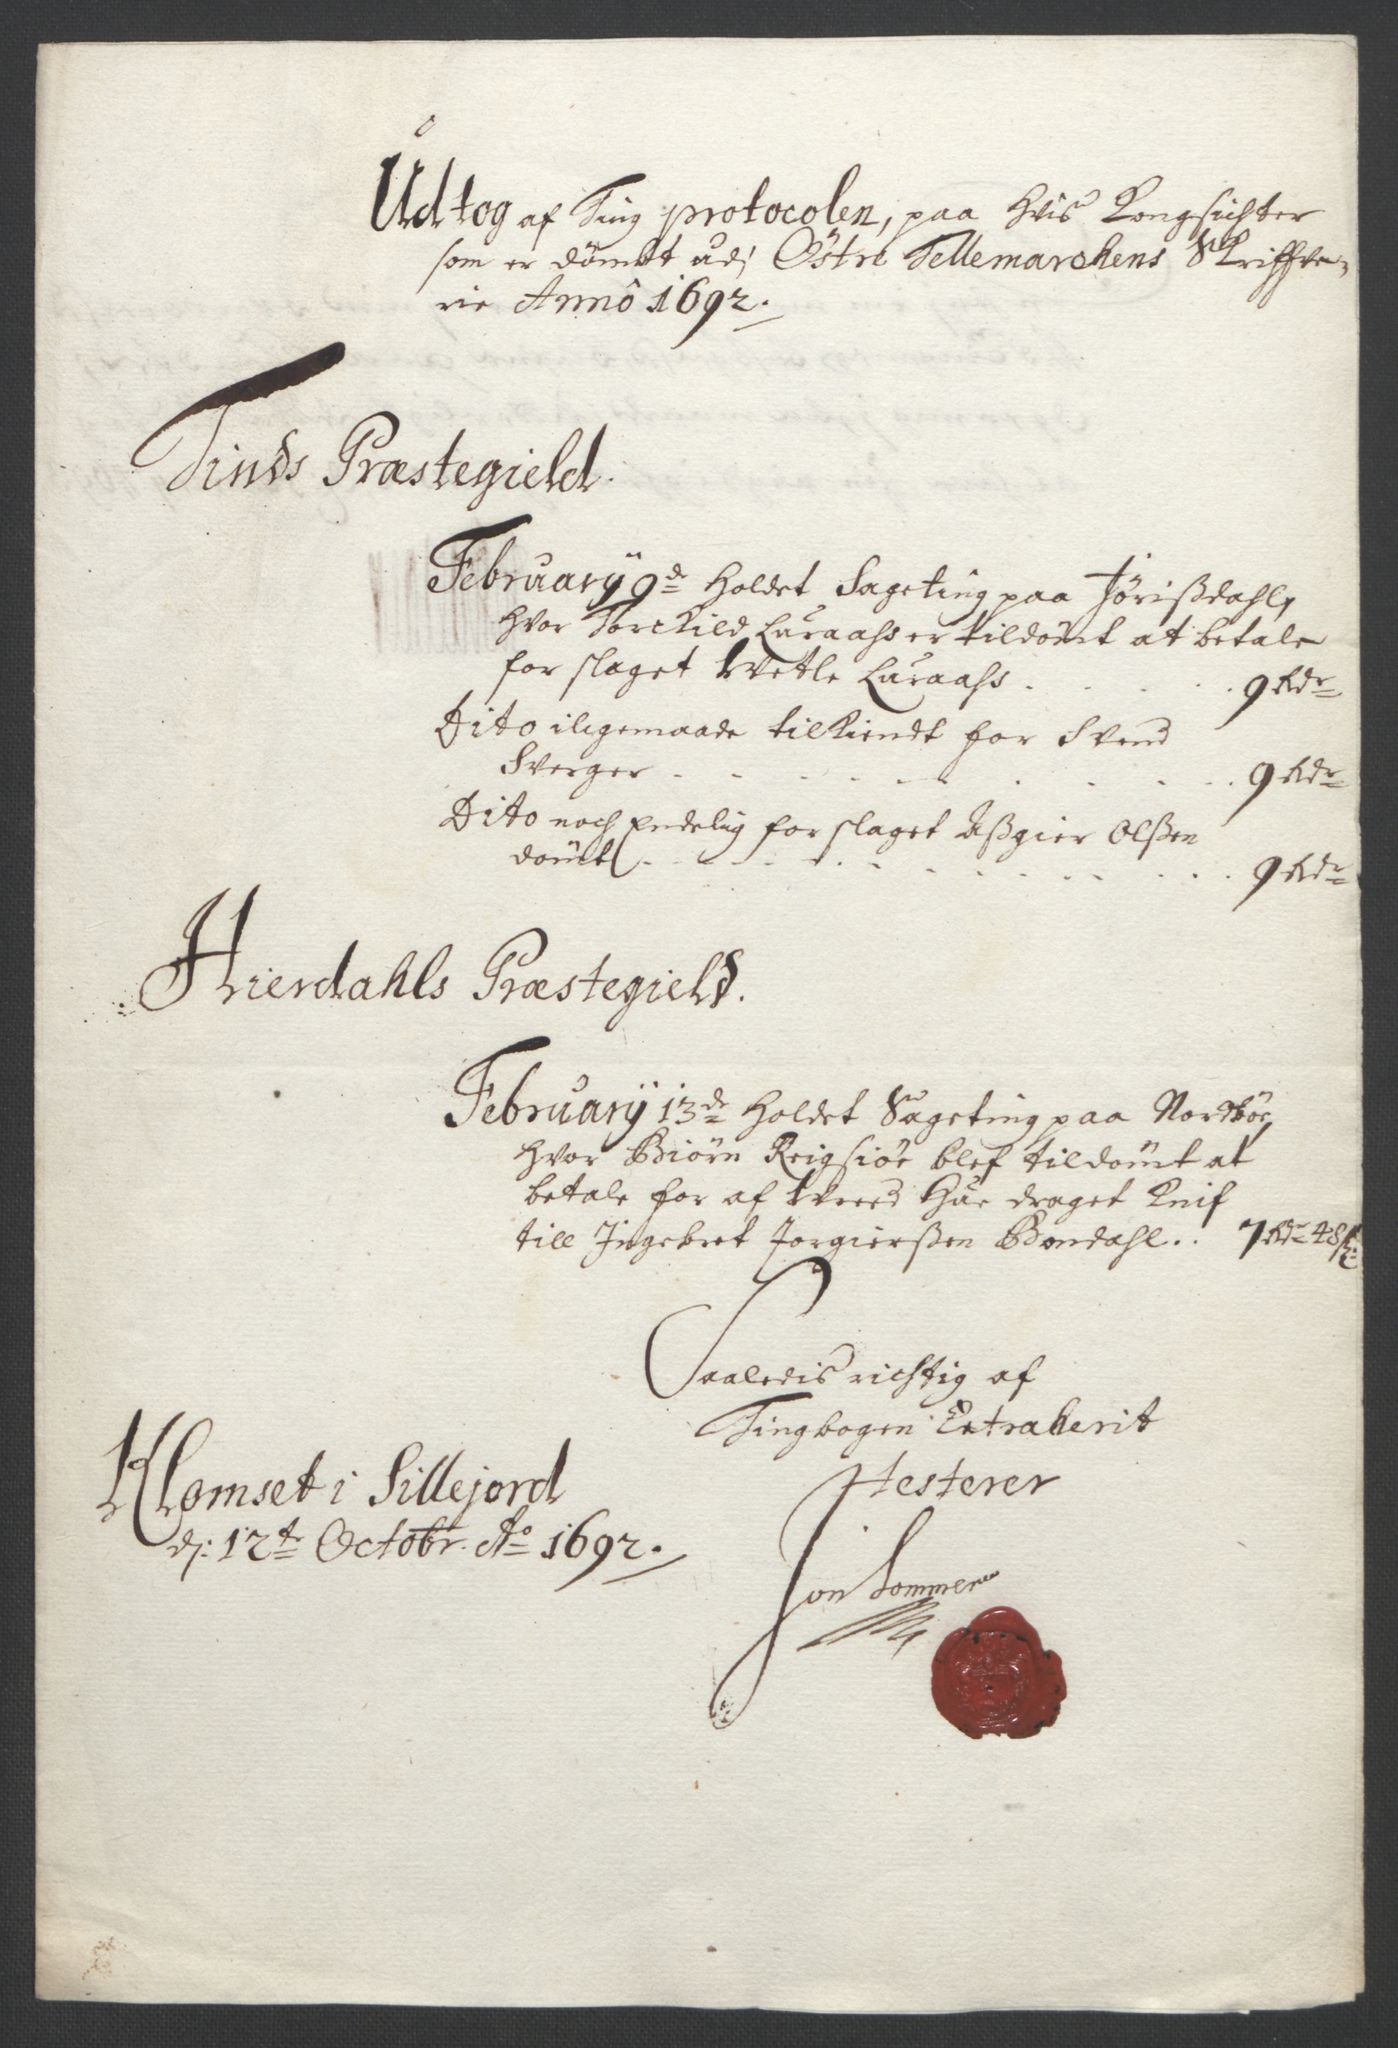 Udtog af Ting protocolen, paa hvis Kongsichter
som er dömbt udj Östre Tellemarchens Skriffve,
rie Anno 1692.
Tinds Præstegield.
Februarÿ 9de holdet Sageting paa Jörißdahl,
hvor Torckild Luraahs er tildömt at betale
for slaget Wetle Luraahs . . . . . 9 Rdr
Dito iligemaade tilkiendt for Svend
Sverger . . . . . . . . . 9 Rdr
Dito noch Endelig for slaget Aßgier Olßen
dömt . . . . . . . . . 9 Rdr
Hierdahls Præstegield.
Februarÿ 13de holdet Sageting paa Nordböe,
hvor Biörn Reigsiöe blef tildömt at
betale for af Vreed Hue draget Knif
till Ingebret Jorgierßen Bondahl . . 7 Rdr 48 s:
Saaledis richtig af
Tingbogen Extraherit
Testerer
Klomset i Sillejord
dj: 12te Octobr. Ao 1692.
Jon Sommer